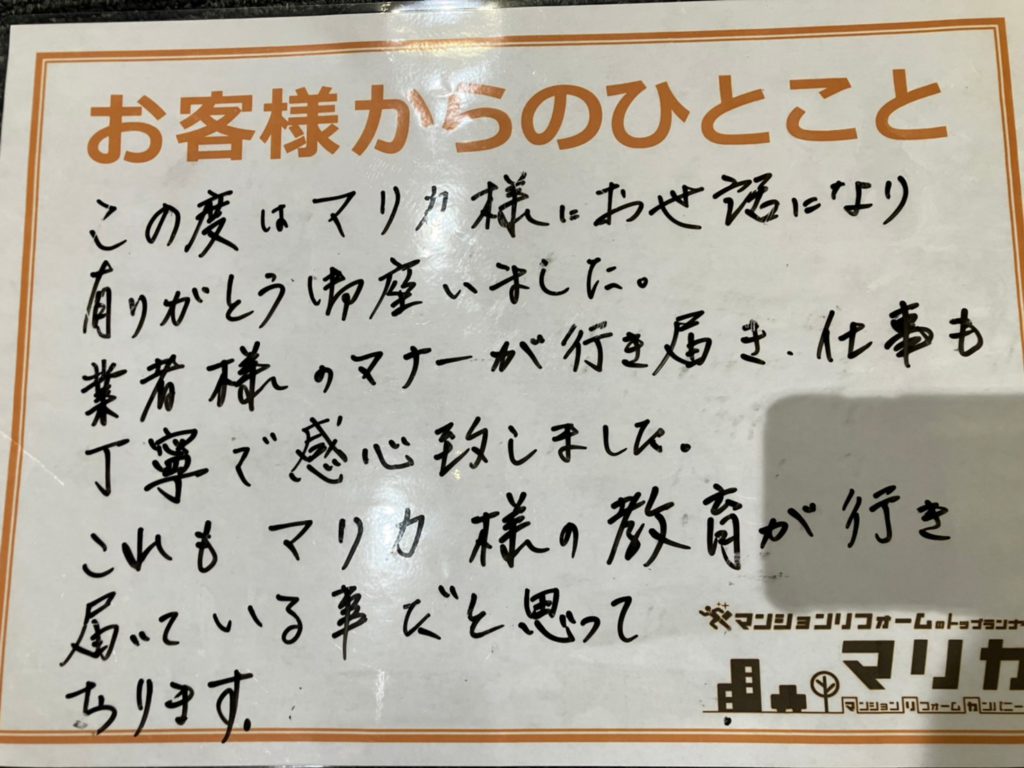 お客様からのひとこと
この度はマリカ様にお世話になり
有りがとう御座いました。
業者様のマナーが行き届き、仕事も
丁寧で感心致しました。
これもマリカ様の教育が行き
届いている事だと思って
おります。
マンションリフォームのトップランナー
マリカ
マンションリフォームカンパニー